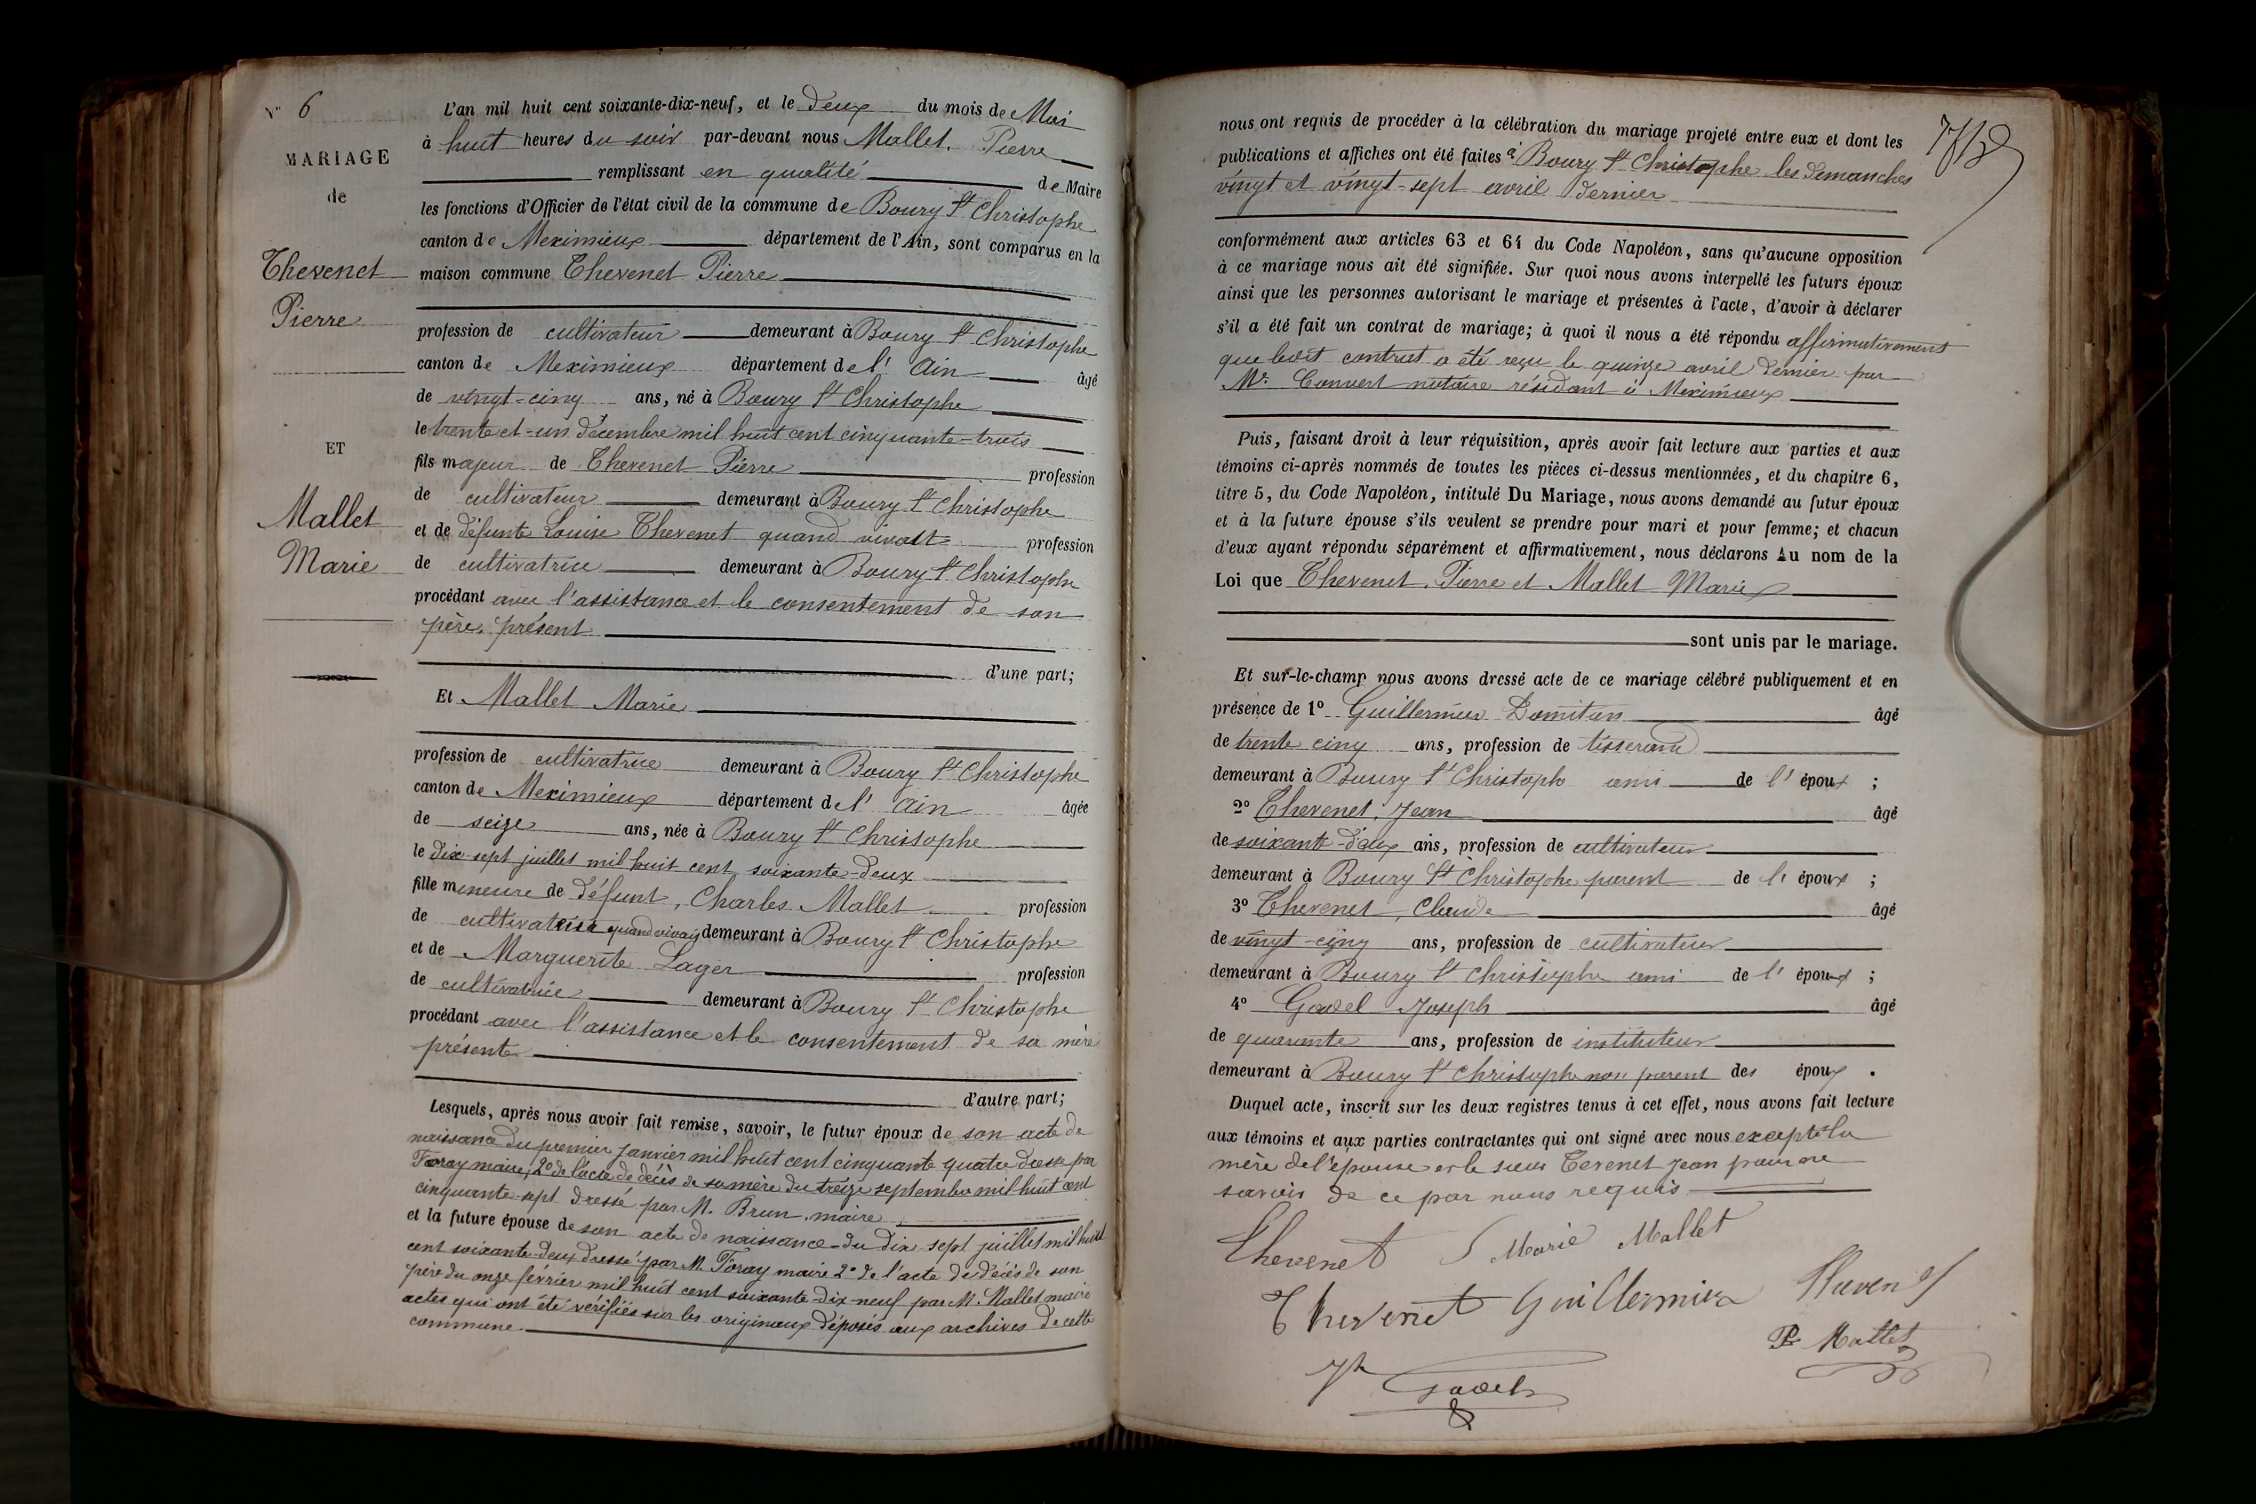 N° 6
MARIAGE
de
Thevenet
Pierre
ET
Mallet
Marie
L'an mil huit cent soixante-dix-neuf, et le deux du mois de Mai
à huit heures du soir par-devant nous Mallet, Pierre
remplissant en qualité de Maire
les fonctions d'Officier de l'état civil de la commune de Bourg St Christophe
canton de Meximieux département de l'Ain, sont comparus en la
maison commune Thevenet Pierre
profession de cultivateur demeurant à Bourg St Christophe
canton de Meximieux département de l' Ain âgé
de vingt-cinq ans, né à Bourg St Christophe
le trente et-un décembre mil huit cent cinquante-trois
fils majeur de Thevenet Pierre profession
de cultivateur demeurant à Bourg St Christophe
et de défunte Louise Thevenet quand vivait profession
de cultivatrice demeurant à Bourg St Christophe
procédant avec l'assistance et le consentement de son
père, présent
d'une part;
Et Mallet Marie
profession de cultivatrice demeurant à Bourg St Christophe
canton de Meximieux département de l' Ain âgée
de seize ans, née à Bourg St Christophe
le dix-sept juillet mil huit cent soixante-deux
fille mineure de défunt, Charles Mallet profession
de quand vivait demeurant à Bourg St Christophe
et de Marguerite Lager profession
de cultivatrice demeurant à Bourg St Christophe
procédant avec l'assistance et le consentement de sa mère
présente
d'autre part;
Lesquels, après nous avoir fait remise, savoir, le futur époux de son acte de
naissance du premier Janvier mil huit cent cinquante quatre dressé par
Foray maire, 2° de l'acte de décès de sa mère du treize septembre mil huit cent
cinquante-sept dressé par M. Brun, maire
et la future épouse de son acte de naissance du dix-sept juillet mil huit
cent soixante-deux dressé par M. Foray maire 2° de l'acte de décès de son
père du onze février mil huit cent soixante-dix-neuf par M. Mallet maire
actes qui ont été vérifiés sur les originaux déposés aux archives de cette
commune
nous ont requis de procéder à la célébration du mariage projeté entre eux et dont les
publications et affiches ont été faites à Bourg St Christophe les demanches
vingt et vingt-sept avril dernier
conformément aux articles 63 et 64 du Code Napoléon, sans qu'aucune opposition
à ce mariage nous ait été signifiée. Sur quoi nous avons interpellé les futurs époux
ainsi que les personnes autorisant le mariage et présentes à l'acte, d'avoir à déclarer
s'il a été fait un contrat de mariage; à quoi il nous a été répondu affirmativement
que ledit contrat a été reçu le quinze avril dernier par
Me. Convert notaire résidant à Meximieux
Puis, faisant droit à leur réquisition, après avoir fait lecture aux parties et aux
témoins ci-après nommés de toutes les pièces ci-dessus mentionnées, et du chapitre 6,
titre 5, du Code Napoléon, intitulé Du Mariage, nous avons demandé au futur époux
et à la future épouse s'ils veulent se prendre pour mari et pour femme; et chacun
d'eux ayant répondu séparément et affirmativement, nous déclarons Au nom de la
Loi que Thevenet, Pierre et Mallet Marie
sont unis par le mariage.
Et sur-le-champ nous avons dressé acte de ce mariage célébré publiquement et en
présence de 1° Guillermier Domitien âgé
de trente cinq ans, profession de tisserand
demeurant à Bourg St Christophe ami de l' époux ;
2° Thevenet, Jean âgé
de soixante-deux ans, profession de cultivateur
demeurant à Bourg St Christophe parent de l' époux ;
3° Thevenet, Claude âgé
de vingt-cinq ans, profession de cultivateur
demeurant à Bourg St Christophe ami de l' époux ;
4° Godel Joseph âgé
de quarante ans, profession de instituteur
demeurant à Bourg St Christophe non parent des époux .
Duquel acte, inscrit sur les deux registres tenus à cet effet, nous avons fait lecture
aux témoins et aux parties contractantes qui ont signé avec nous excepté la
mère de l'épouse et le sieur Tevenet Jean pour ne
savoir de ce par nous requis
Thevenet Marie Mallet
Thevenet Guillermier Thevenet
Pre Mallet
Jh Godel